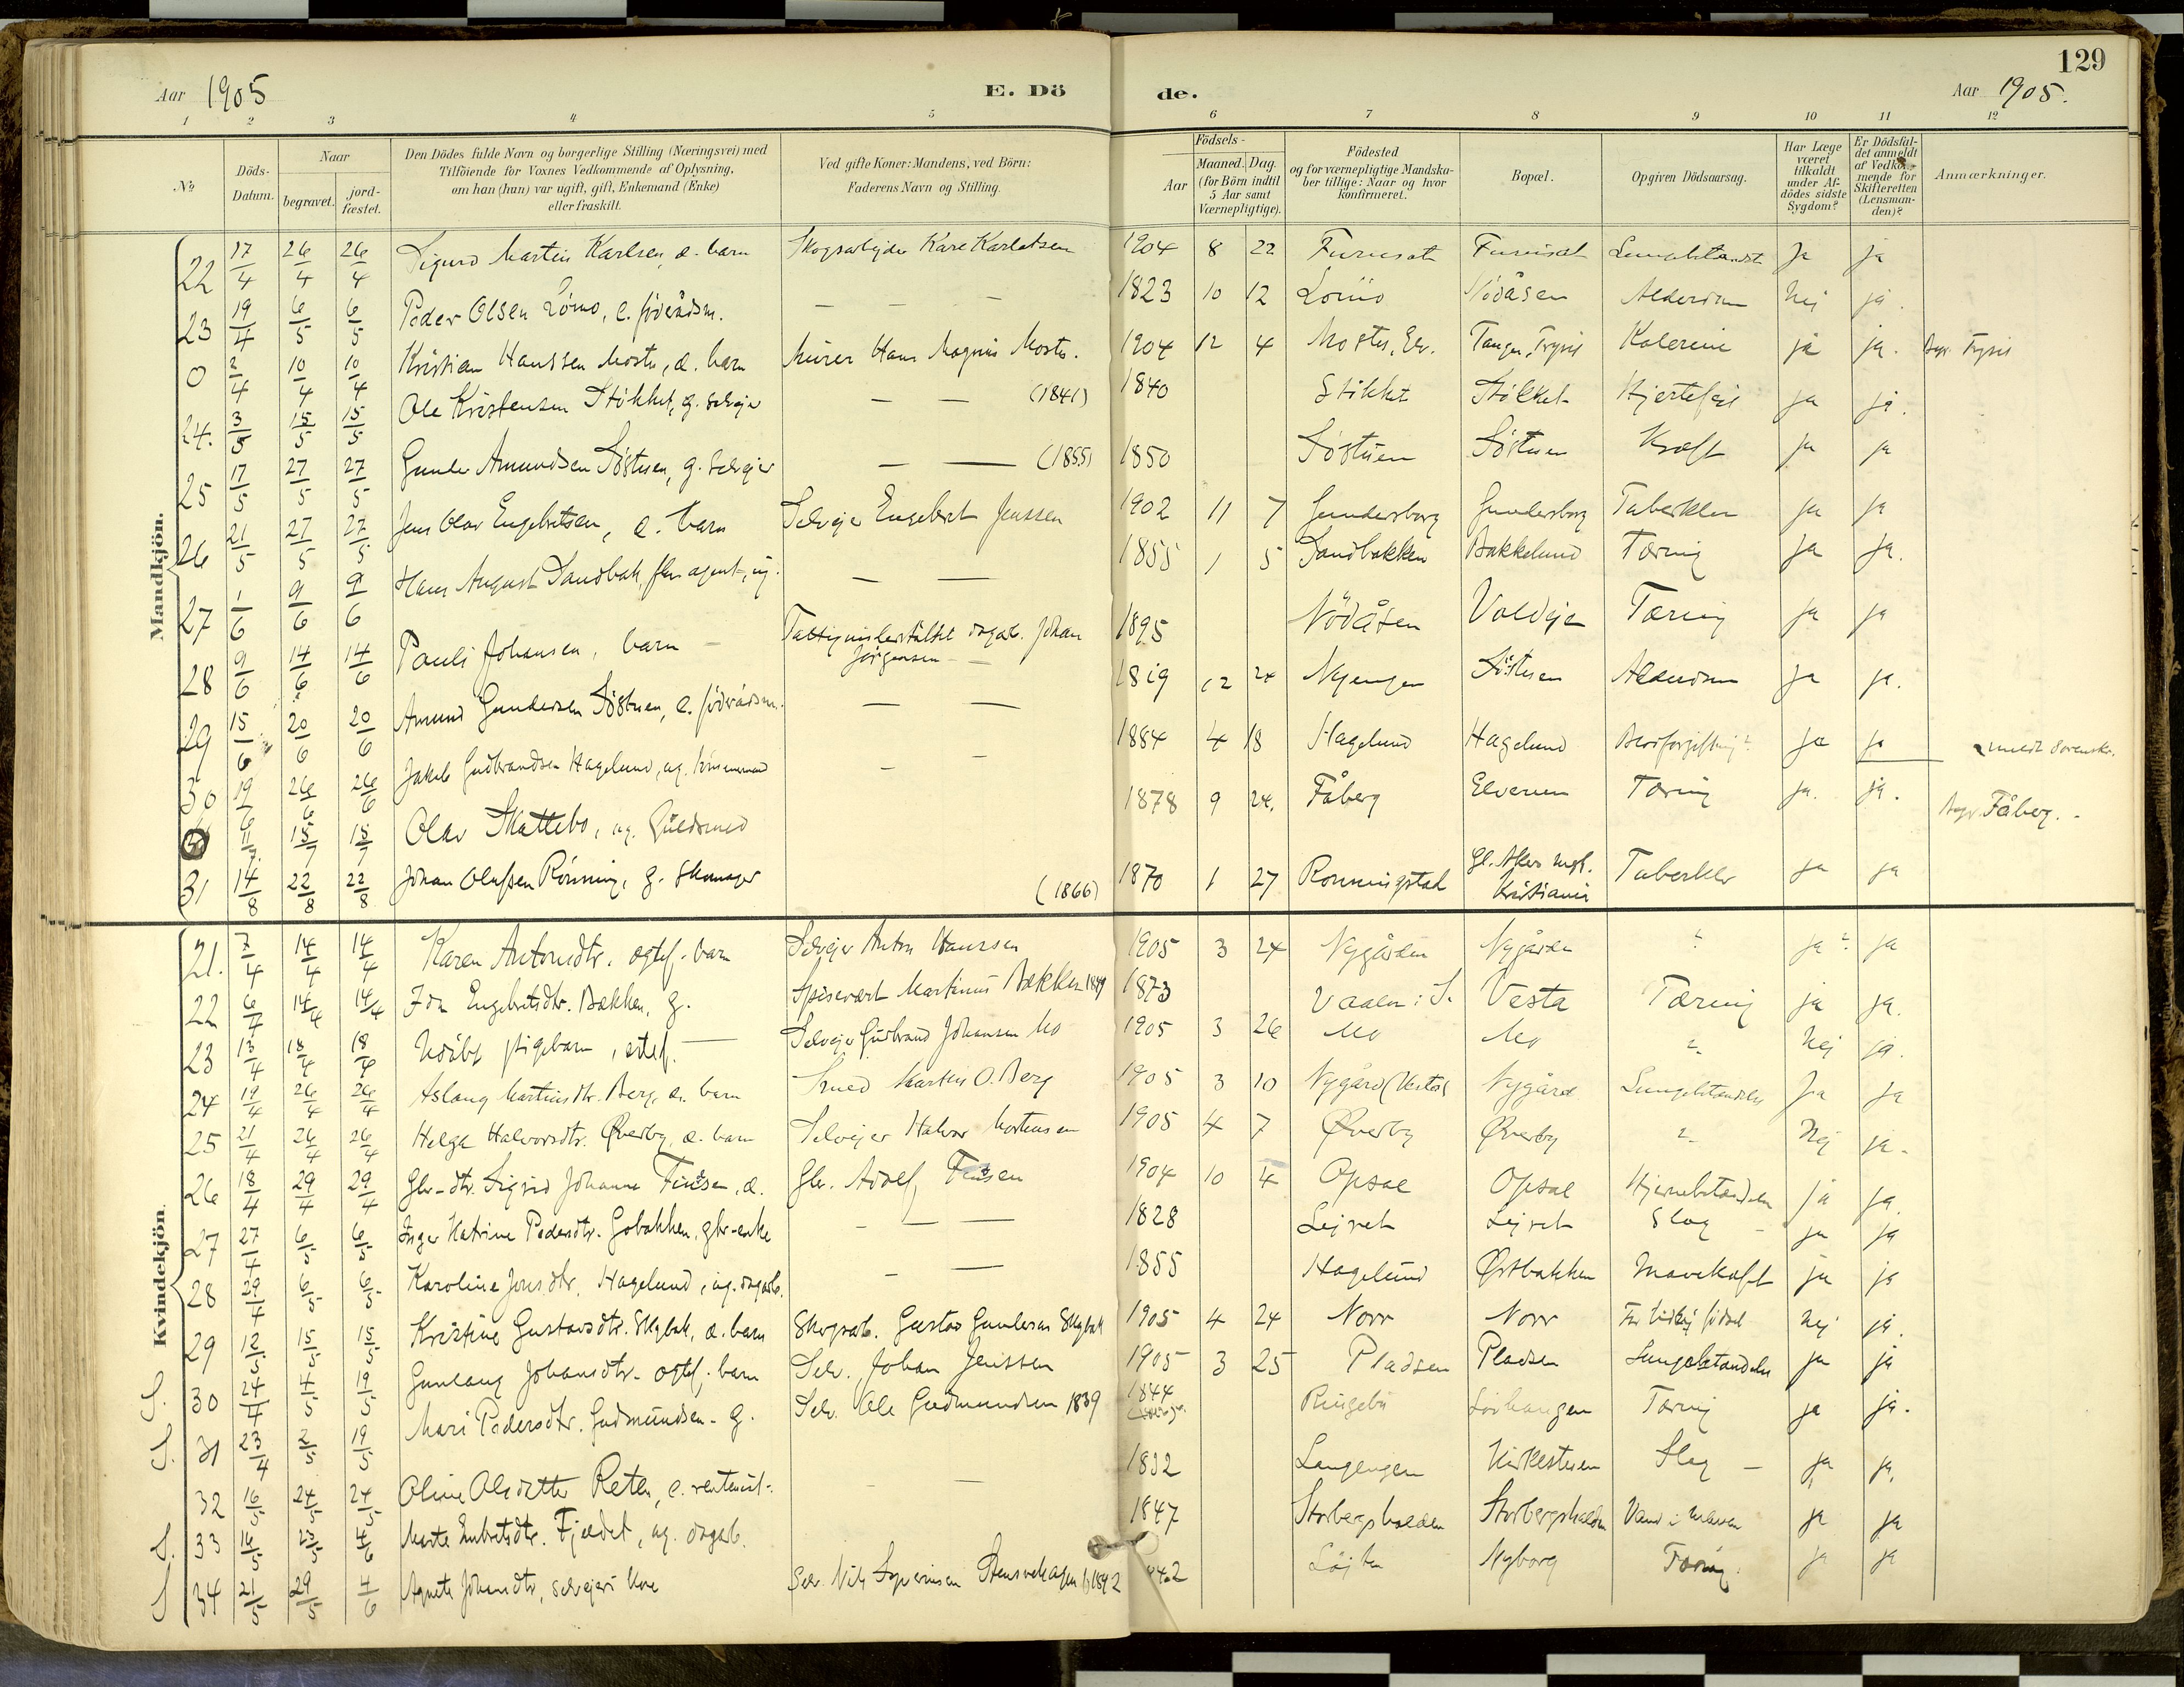 129
Aar 1905
E. Dö
de.
Aar 1905.
1 2 3 4 5 6 7 8 9 10 11 12
№
Döds-Datum.
Naar
begravet.
jord-fæstet.
Den Dödes fulde Navn og borgerlige Stilling (Næringsvei) med
Tilföiende for Voxnes Vedkommende af Oplysning,
om han (hun) var ugift, gift, Enkemand (Enke)
eller fraskilt.
Ved gifte Koner: Mandens, ved Börn:
Faderens Navn og Stilling.
Födsels-
Aar
Maaned. Dag.
(for Börn indtil
5 Aar samt
Værnepligtige).
Födested
og for værnepligtige Mandska-
ber tillige: Naar og hvor
konfirmeret.
Bopæl.
Opgiven Dödsaarsag.
Har Læge
været
tilkaldt
under Af-
dödes sidste
Sygdom?
Er Dödsfal-
det anmeldt
af Vedkom-
mende for
Skifteretten
(Lensman-
den)?
Anmærkninger.
Mandkjön.
22 17/4 26/4 26/4 Sigurd Martin Karlsen, e. barn Skogsarbejder Kare Karlsen 1904 8 22 Furuset Furuset Ja ja
23 19/4 6/5 6/5 Peder Olsen Lömo, e. föderådsm. — — — 1823 10 12 Lömo Nödåsen Alderdom Nej ja.
0 2/4 10/4 10/4 Kristian Hanssen Moster, e. barn Murer Hans Magnus Moster. 1904 12 4 Moster, Elv. Tangen, Trysil Kolerine ja ja. Begr. Trysil
24. 3/5 15/5 15/5 Ole Kristensen Stökket, g. selvejer — — (1841) 1840 Stökket Stökket Hjertefejl ja ja.
25 17/5 27/5 27/5 Gunder Amundsen Söstuen, g. selvejer — — (1855) 1850 Söstuen Söstuen Kræft ja ja
26 21/5 27/5 27/5 Jens Olav Engebretsen, e. barn Selvejer Engebret Jenssen 1902 11 7 Gundersborg Gundersborg Tuberkler ja ja
27 1/6 9/6 9/6 Hans August Sandbak, agent, ug. — — 1855 1 5 Sandbakken Bakkelund Tæring ja ja.
28 9/6 14/6 14/6 Pauli Johansen, barn — dagarb. Johan
Jörgensen — 1895 Nödåsen Voldeja Tæring ja ja
29 15/6 20/6 20/6 Amund Gundersen Söstuen, e. föderådsm. — — 1819 12 24 Nyengen Söstuen Alderdom ja ja.
30 19/6 26/6 26/6 Jakob Gudbrandsen Hagelund, ug. — — 1884 4 18 Hagelund Hagelund Blodforgiftning? ja ja
11/7 15/7 15/7 Olav Skattebo, ug. Guldsmed 1878 9 24. Fåberg Elverum Tæring ja. ja. Begr. Fåberg. -
31 14/8 22/8 22/8 Johan Olufsen Rönning, g. Skomager (1866) 1870 1 27 Rönningstad Gl. Akers mgh.
Kristiania Tuberkler ja ja
Kvindekjön.
21. 7/4 14/4 14/4 Karen Antonsdtr. ægtef. barn Selvejer Anton Hanssen 1905 3 24 Nygården Nygården ? ja? ja
22 6/4 14/4 14/4 Ida Engebretsdtr. Bakken, g. Spisevært Martinus Bakken 1849 1873 Vaaler i S. Vesta Tæring ja ja.
23 13/4 18/4 18/4 Udöbt pigebarn, ægtef. — Selvejer Gudbrand Johansen Mo 1905 3 26 Mo Mo ? Nej ja.
24 19/4 26/4 26/4 Aslaug Martinsdtr. Berg, e. barn Smed Martin O. Berg 1905 3 10 Nygård (Vestad) Nygård Lungebetændelse Ja ja
25 21/4 26/4 26/4 Helga Halvorsdtr. Øverby, e. barn Selvejer Halvor Mortensen 1905 4 7 Øverby Øverby ? Nej ja.
26 18/4 29/4 29/4 Gbr-dtr. Sigrid Johanne, e. Gbr. Adolf 1904 10 4 Opsal Opsal Hjernebetændelse ja ja.
27 27/4 6/5 6/5 Inger Katrine Pedersdtr. Gobakken, gbr-enke — — — 1828 Lejret Lejret Slag — ja ja
28 29/4 6/5 6/5 Karoline Jonsdtr. Hagelund, ug. dagarb. — — 1855 Hagelund Østbakken Mavekræft ja ja
29 12/5 15/5 15/5 Kristine Gustavsdtr. Skybak, e. barn Skogsarb. Gustav Gundersen Skybak 1905 4 24 Norr Norr For tidlig födsel Nej ja.
S. 30 24/4 4/5 19/5 Gunlaug Johansdtr. ægtef. barn Selv. Johan Jenssen 1905 3 25 Pladsen Pladsen Lungebetændelse ja ja
S. 31 23/4 2/5 19/5 Mari Pedersdtr. Gudmundsen - g. Selv. Ole Gudmundsen 1839 1844 Ringebu Lövhaugen Tæring ja ja.
32 16/5 24/5 24/5 Oline Olsdatter Reten, e. — — 1832 Langengen Kirkestuen Slag — ja ja.
S. 33 16/5 23/5 4/6 Marte Embretsdtr. Fjeldet, ug. dagarb. 1847 Storbergshalden Storbergshalden Vand i maven ja ja
S 34 21/5 29/5 4/6 Agnete Johansdtr, selvejers kone Selv. Nils Syversen Stensvehagen f. 1842 1842 Löjten Nyborg Tæring. ja ja